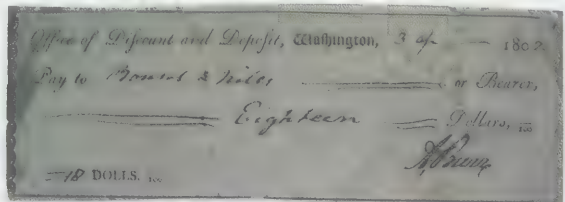 Office of Discount and Deposit, Washington, 3 ap 1802
Pay to & Niles or Bearer,
Eighteen Dollars, 100
18 DOLLS. 100